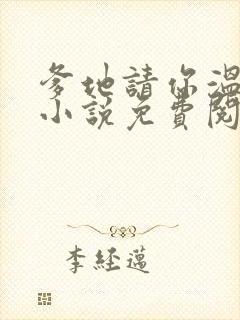 爹地請你溫
小說免費閱
李經邁